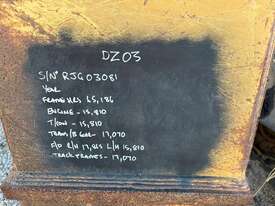 DZ03
S/Nº RJG03081
YEAR
FRAME HRS 65,186
ENGINE - 15,810
T/CON - 15,810
TRANS/B GEAR - 17,070
F/D R/H 17,865 L/H 15,810
TRACK FRAMES - 17,070